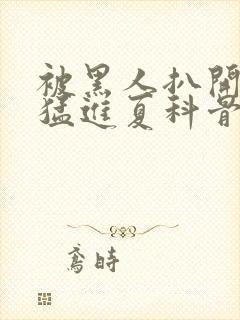 被黑人扒開
猛進夏科骨
鳶時